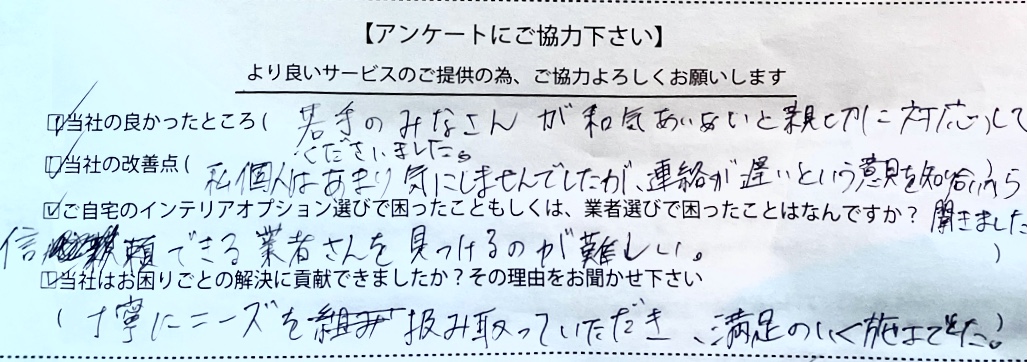 【アンケートにご協力下さい】
より良いサービスのご提供の為、ご協力よろしくお願いします
☑当社の良かったところ( 若手のみなさんが和気あいあいと親切に対応して
くださいました。
☑当社の改善点( 私個人はあまり気にしませんでしたが、連絡が遅いという意見を知り合いから
☑ご自宅のインテリアオプション選びで困ったこともしくは、業者選びで困ったことはなんですか? 聞きました
信頼できる業者さんを見つけるのが難しい。 )
☑当社はお困りごとの解決に貢献できましたか?その理由をお聞かせ下さい
( 丁寧にニーズを扱み取っていただき、満足のいく施工でした。)